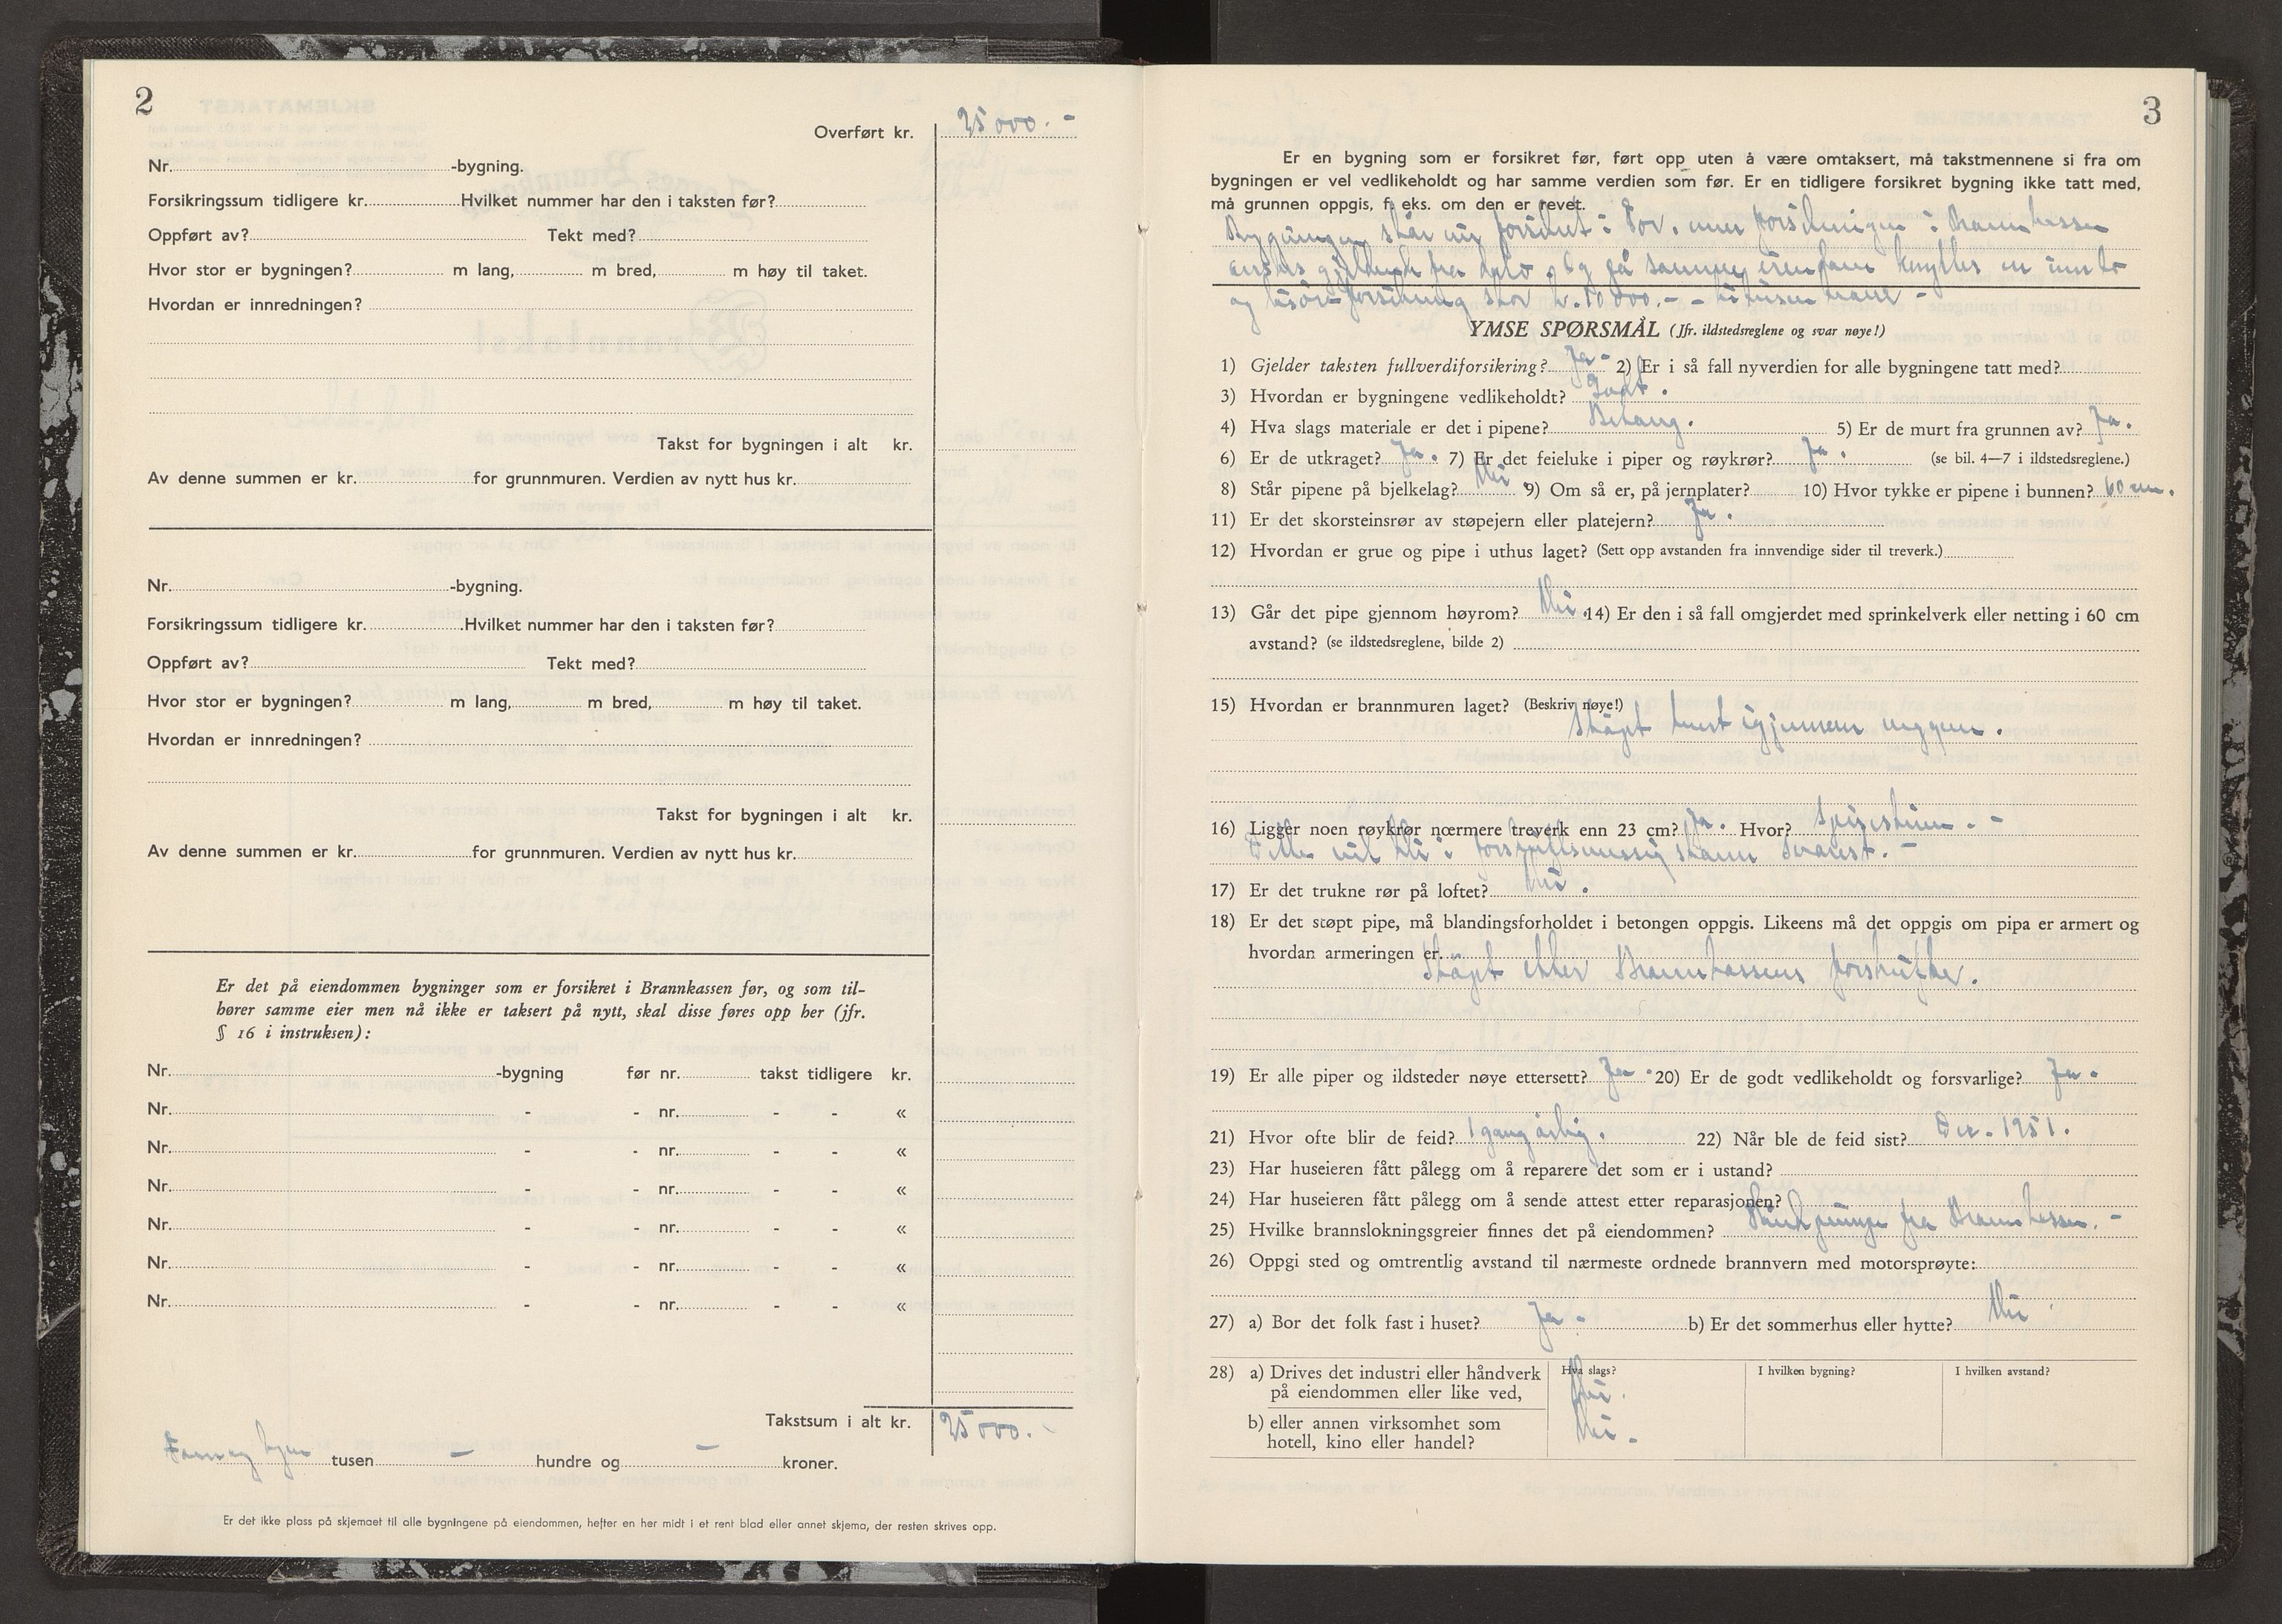 2
Overført kr. 25 000.-
Nr. -bygning.
Forsikringssum tidligere kr. Hvilket nummer har den i taksten før?
Oppført av? Tekt med?
Hvor stor er bygningen? m lang, m bred, m høy til taket.
Hvordan er innredningen?
Takst for bygningen i alt kr.
Av denne summen er kr. for grunnmuren. Verdien av nytt hus kr.
Nr. -bygning.
Forsikringssum tidligere kr. Hvilket nummer har den i taksten før?
Oppført av? Tekt med?
Hvor stor er bygningen? m lang, m bred, m høy til taket.
Hvordan er innredningen?
Takst for bygningen i alt kr.
Av denne summen er kr. for grunnmuren. Verdien av nytt hus kr.
Er det på eiendommen bygninger som er forsikret i Brannkassen før, og som til-
hører samme eier men nå ikke er taksert på nytt, skal disse føres opp her (jfr.
§ 16 i instruksen):
Nr. -bygning før nr. takst tidligere kr.
Nr. - - nr. - - «
Nr. - - nr. - - «
Nr. - - nr. - - «
Nr. - - nr. - - «
Nr. - - nr. - - «
Nr. - - nr. - - «
Takstsum i alt kr. 25 000.-
Fem og tjue tusen - hundre og - kroner.
Er det ikke plass på skjemaet til alle bygningene på eiendommen, hefter en her midt i et rent blad eller annet skjema, der resten skrives opp.
3
Er en bygning som er forsikret før, ført opp uten å være omtaksert, må takstmennene si fra om
bygningen er vel vedlikeholdt og har samme verdien som før. Er en tidligere forsikret bygning ikke tatt med,
må grunnen oppgis, f. eks. om den er revet.
Bygningen står nu forsikret i men forsikringen i Brannkassen
ønskes gjeldende fra dato. Og på samme eiendom knyttes en innbo
og løsøreforsikring stor kr. 10 000.- - ti tusen kroner -
YMSE SPØRSMÅL (Jfr. ildstedsreglene og svar nøye!)
1) Gjelder taksten fullverdiforsikring? Ja - 2) Er i så fall nyverdien for alle bygningene tatt med?
3) Hvordan er bygningene vedlikeholdt? Godt.
4) Hva slags materiale er det i pipene? Betong. 5) Er de murt fra grunnen av? Ja.
6) Er de utkraget? Ja. 7) Er det feieluke i piper og røykrør? Ja. (se bil. 4—7 i ildstedsreglene.)
8) Står pipene på bjelkelag? Nei 9) Om så er, på jernplater? 10) Hvor tykke er pipene i bunnen? 60 cm.
11) Er det skorsteinsrør av støpejern eller platejern? Ja.
12) Hvordan er grue og pipe i uthus laget? (Sett opp avstanden fra innvendige sider til treverk.)
13) Går det pipe gjennom høyrom? Nei. 14) Er den i så fall omgjerdet med sprinkelverk eller netting i 60 cm
avstand? (se ildstedsreglene, bilde 2)
15) Hvordan er brannmuren laget? (Beskriv nøye!)
Støpt tvert igjennem veggen.
16) Ligger noen røykrør nærmere treverk enn 23 cm? Ja. Hvor? Spisestuen. -
Dette vil bli i forskriftsmessig stann snarest. -
17) Er det trukne rør på loftet? Nei.
18) Er det støpt pipe, må blandingsforholdet i betongen oppgis. Likeens må det oppgis om pipa er armert og
hvordan armeringen er. Støpt etter Brannkassens forskrifter.
19) Er alle piper og ildsteder nøye ettersett? Ja. 20) Er de godt vedlikeholdt og forsvarlige? Ja -
21) Hvor ofte blir de feid? 1 gang årlig. 22) Når ble de feid sist? Des. 1951.
23) Har huseieren fått pålegg om å reparere det som er i ustand?
24) Har huseieren fått pålegg om å sende attest etter reparasjonen?
25) Hvilke brannslokningsgreier finnes det på eiendommen? Håndpumpe fra Brannkassen. -
26) Oppgi sted og omtrentlig avstand til nærmeste ordnede brannvern med motorsprøyte:
27) a) Bor det folk fast i huset? Ja - b) Er det sommerhus eller hytte? Nei
28) a) Drives det industri eller håndverk på eiendommen eller like ved, Hva slags? Nei. I hvilken bygning? I hvilken avstand?
b) eller annen virksomhet som hotell, kino eller handel? Nei -